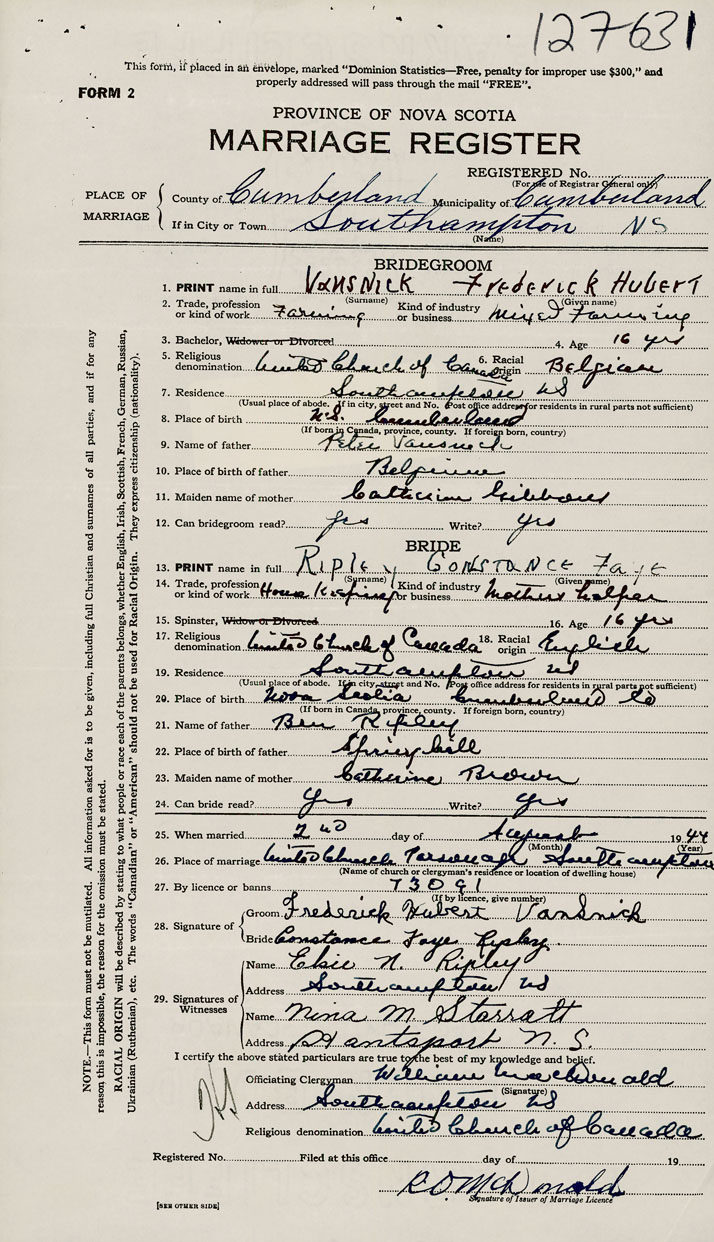 127631
This form, if placed in an envelope, marked "Dominion Statistics—Free, penalty for improper use $300," and
properly addressed will pass through the mail "FREE".
FORM 2
PROVINCE OF NOVA SCOTIA
MARRIAGE REGISTER
REGISTERED No.
(For use of Registrar General only)
PLACE OF MARRIAGE
County of Cumberland Municipality of Cumberland
If in City or Town Southampton NS
(Name)
BRIDEGROOM
1. PRINT name in full VANSNICK FREDERICK HUBERT
(Surname) (Given name)
2. Trade, profession or kind of work Farming Kind of industry or business Mixed Farming
3. Bachelor, Widower or Divorced 4. Age 16 yrs
5. Religious denomination United Church of Canada 6. Racial origin Belgian
7. Residence Southampton NS
(Usual place of abode. If in city, street and No. Post office address for residents in rural parts not sufficient)
8. Place of birth N.S. Cumberland
(If born in Canada, province, county. If foreign born, country)
9. Name of father Peter Vansnick
10. Place of birth of father Belgium
11. Maiden name of mother Catherine Gibbons
12. Can bridegroom read? yes Write? yes
BRIDE
13. PRINT name in full RIPLEY CONSTANCE FAYE
(Surname) (Given name)
14. Trade, profession or kind of work House Keeping Kind of industry or business Mothers helper
15. Spinster, Widow or Divorced 16. Age 16 yrs
17. Religious denomination United Church of Canada 18. Racial origin English
19. Residence Southampton NS
(Usual place of abode. If in city, street and No. Post office address for residents in rural parts not sufficient)
20. Place of birth Nova Scotia Cumberland Co
(If born in Canada, province, county. If foreign born, country)
21. Name of father Ben Ripley
22. Place of birth of father Springhill
23. Maiden name of mother Catherine Brown
24. Can bride read? Yes Write? yes
25. When married 2nd day of August 1944
(Month) (Year)
26. Place of marriage United Church Parsonage Southampton
(Name of church or clergyman's residence or location of dwelling house)
27. By licence or banns 73091
(If by licence, give number)
28. Signature of
Groom Frederick Hubert VanSnick
Bride Constance Faye Ripley
29. Signatures of Witnesses
Name Elsie N. Ripley
Address Southampton NS
Name Nina M. Starratt
Address Hantsport N. S.
I certify the above stated particulars are true to the best of my knowledge and belief.
Officiating Clergyman William MacDonald
(Signature)
Address Southampton NS
Religious denomination United Church of Canada
Registered No. Filed at this office day of 19
McDonald
Signature of Issuer of Marriage Licence
[SEE OTHER SIDE]
NOTE.—This form must not be mutilated. All information asked for is to be given, including full Christian and surnames of all parties, and if for any
reason this is impossible, the reason for the omission must be stated.
RACIAL ORIGIN will be described by stating to what people or race each of the parents belongs, whether English, Irish, Scottish, French, German, Russian,
Ukrainian (Ruthenian), etc. The words "Canadian" or "American" should not be used for Racial Origin. They express citizenship (nationality).